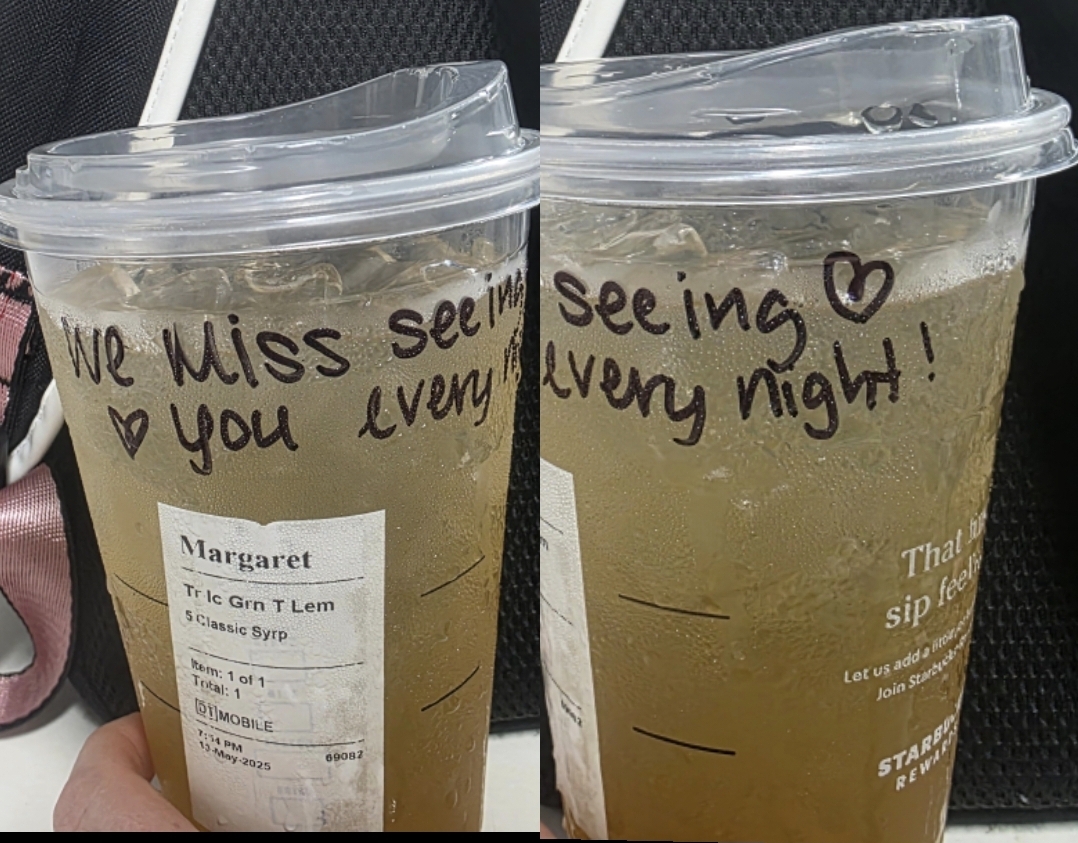 We Miss seeing
you every night!
Margaret
Tr Ic Grn T Lem
5 Classic Syrp
Item: 1 of 1
Total: 1
DT MOBILE
7:14 PM
-May-2025 69082
seeing
every night!
That
sip
Let us add a little
Join Starbucks
STARBU
REWA